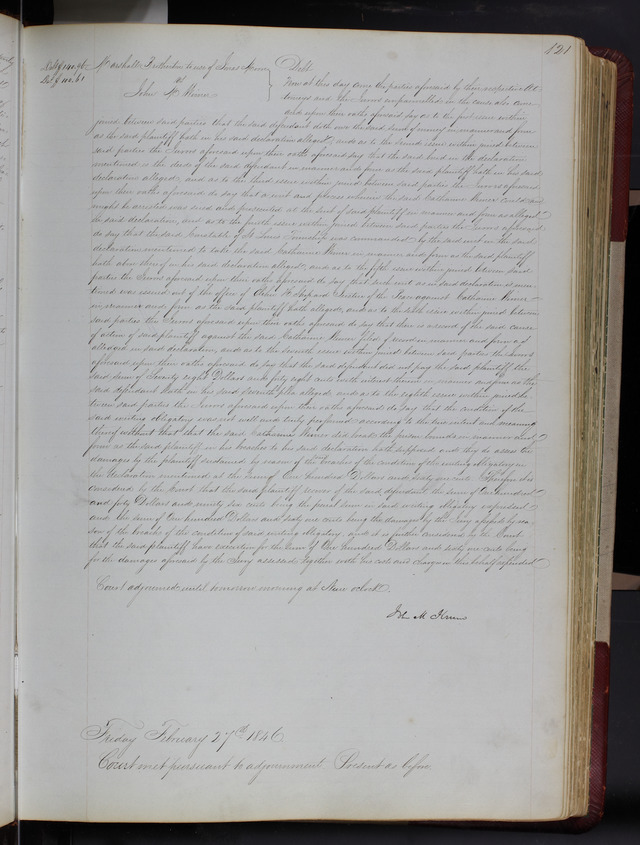 121
Debt $140.96
Dam $100.61
Marshall Brotherton to use of
vs
John W. Reimer
Debt
Now at this day come the parties aforesaid by their respective At-
torneys and the Jurors empannelled in the cause also come
and upon their oaths aforesaid say as to the first issue within
joined between said parties that the said defendant doth owe the said sum of money in manner and form
as the said plaintiff hath in his said declaration alleged, and as to the second issue within joined between
said parties the Jurors aforesaid upon their oaths aforesaid say that the said bond in the declaration
mentioned is the deed of the said defendant in manner and form as the said plaintiff hath in his said
declaration alleged, and as to the third issue within joined between said parties the Jurors aforesaid
upon their oaths aforesaid do say that a writ and process wherein the said Catharine could and
might be arrested was sued and prosecuted at the suit of said plaintiff in manner and form as alleged in
the said declaration, and as to the fourth issue within joined between said parties the Jurors aforesaid
do say that the said Constable of St Louis Township was commanded by the said writ in the said
declaration mentioned to take the said Catharine in manner and form as the said plaintiff
hath above thereof in his said declaration alleged, and as to the fifth issue within joined between said
parties the Jurors aforesaid upon their oaths aforesaid do say that such writ as in said declaration is men-
tioned was issued out of the office of Justice of the Peace against Catharine
in manner and form as the said plaintiff hath alleged, and as to the sixth issue within joined between
said parties the Jurors aforesaid upon their oaths aforesaid do say that there is a record of the said cause
of action of said plaintiff against the said Catharine in manner and form as
alleged in said declaration, and as to the seventh issue within joined between said parties the Jurors
aforesaid upon their oaths aforesaid do say that the said defendant did not pay the said plaintiff the
said sum of Seventy eight Dollars and fifty eight cents with interest thereon in manner and form as the
said defendant hath in his said seventh plea alleged, and as to the eighth issue within joined be-
tween said parties the Jurors aforesaid upon their oaths aforesaid do say that the condition of the
said writing obligatory was not well and truly performed according to the true intent and meaning
thereof without that that the said Catharine did break the prison bounds in manner and
form as the said plaintiff in his breaches to his said declaration hath supposed and they do assess the
damages by the plaintiff sustained by reason of the breaches of the condition of the writing obligatory in
the declaration mentioned at the sum of One hundred Dollars and sixty one cents. Therefore it is
considered by the Court that the said plaintiff recover of the said defendant the sum of One hundred
and forty Dollars and ninety six cents being the penal sum in said writing obligatory expressed
and the sum of One hundred Dollars and sixty one cents being the damages by the Jury assessed by rea-
son of the breach of the condition of said writing obligatory and it is further considered by the Court
that the said plaintiff have execution for the sum of One hundred Dollars and sixty one cents being
for the damages aforesaid by the Jury assessed together with his costs and charges in this behalf expended
Court adjourned until tomorrow morning at Nine o'clock
John M Krum
Friday February 27th 1846
Court met pursuant to adjournment Present as before